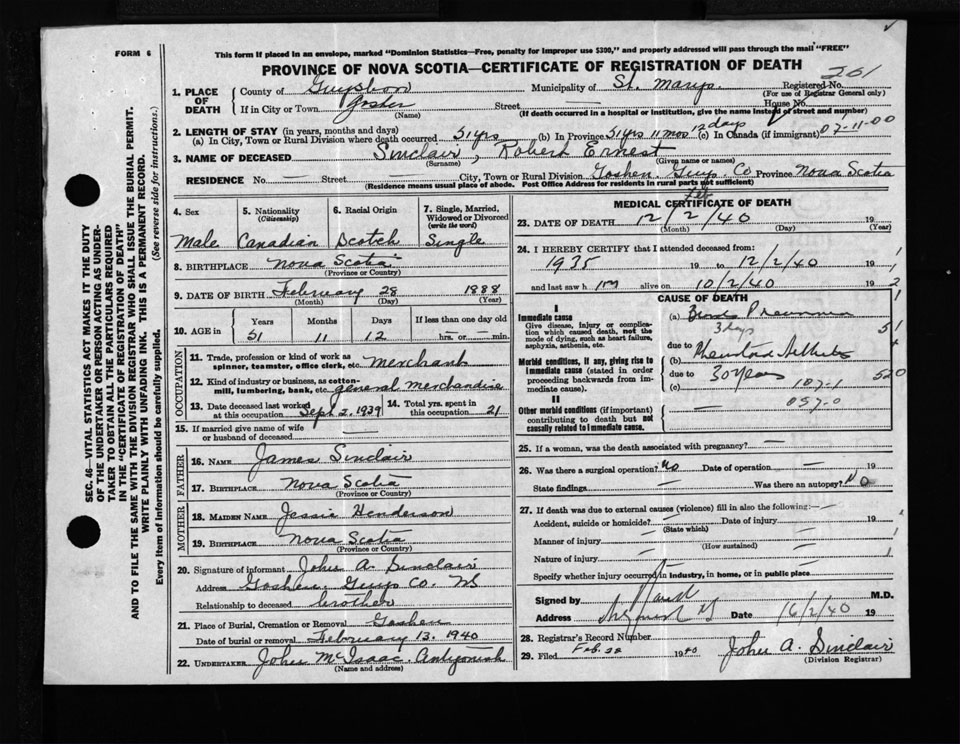 FORM 6
This form if placed in an envelope, marked "Dominion Statistics—Free, penalty for improper use $300," and properly addressed will pass through the mail "FREE"
PROVINCE OF NOVA SCOTIA—CERTIFICATE OF REGISTRATION OF DEATH
201
1. PLACE OF DEATH
County of Guysboro Municipality of St. Marys Registered No.
(For use of Registrar General only)
If in City or Town Goshen Street — House No.
(Name) (If death occurred in a hospital or institution, give the name instead of street and number)
2. LENGTH OF STAY (in years, months and days)
(a) In City, Town or Rural Division where death occurred 51 yrs (b) In Province 51 yrs 11 mos 12 days (c) In Canada (if immigrant) 07-11-00
3. NAME OF DECEASED Sinclair, Robert Ernest
(Surname) (Given name or names)
RESIDENCE No. — Street — City, Town or Rural Division Goshen Guys. Co Province Nova Scotia
(Residence means usual place of abode. Post Office Address for residents in rural parts not sufficient)
4. Sex
Male
5. Nationality (Citizenship)
Canadian
6. Racial Origin
Scotch
7. Single, Married, Widowed or Divorced (write the word)
Single
8. BIRTHPLACE Nova Scotia
(Province or Country)
9. DATE OF BIRTH February 28 1888
(Month) (Day) (Year)
10. AGE in
Years Months Days If less than one day old
51 11 12 hrs. or min.
OCCUPATION
11. Trade, profession or kind of work as spinner, teamster, office clerk, etc. Merchant
12. Kind of industry or business, as cotton-mill, lumbering, bank, etc. general merchandise
13. Date deceased last worked at this occupation Sept 2, 1939
14. Total yrs. spent in this occupation 21
15. If married give name of wife or husband of deceased —
FATHER
16. NAME James Sinclair
17. BIRTHPLACE Nova Scotia
(Province or Country)
MOTHER
18. MAIDEN NAME Jessie Henderson
19. BIRTHPLACE Nova Scotia
(Province or Country)
20. Signature of informant John A. Sinclair
Address Goshen Guys Co. NS
Relationship to deceased brother
21. Place of Burial, Cremation or Removal Goshen
Date of burial or removal February 13, 1940
22. UNDERTAKER John McIsaac Antigonish
(Name and address)
MEDICAL CERTIFICATE OF DEATH
Feb
23. DATE OF DEATH 12/2/40 19
(Month) (Day) (Year)
24. I HEREBY CERTIFY that I attended deceased from:
1935 19 to 12/2/40 19
and last saw h im alive on 10/2/40 19
CAUSE OF DEATH
I
Immediate cause
Give disease, injury or complication which caused death, not the mode of dying, such as heart failure, asphyxia, asthenia, etc.
(a) Pneumonia
3 days
due to
Morbid conditions, if any, giving rise to immediate cause (stated in order proceeding backwards from immediate cause).
(b)
due to 30 years
(c) 107-1 520
II
Other morbid conditions (if important) contributing to death but not causally related to immediate cause.
— 057-0
25. If a woman, was the death associated with pregnancy? —
26. Was there a surgical operation? No Date of operation — 19
State findings — Was there an autopsy? No
27. If death was due to external causes (violence) fill in also the following:—
Accident, suicide or homicide? — Date of injury — 19
(State which)
Manner of injury — (How sustained) —
Nature of injury —
Specify whether injury occurred in industry, in home, or in public place
Signed by M.D.
Address Date 16/2/40 19
28. Registrar's Record Number
29. Filed Feb 28 1940 John A. Sinclair
(Division Registrar)
SEC. 46—VITAL STATISTICS ACT MAKES IT THE DUTY
OF THE UNDERTAKER OR PERSON ACTING AS UNDER-
TAKER TO OBTAIN ALL THE PARTICULARS REQUIRED
IN THE "CERTIFICATE OF REGISTRATION OF DEATH"
AND TO FILE THE SAME WITH THE DIVISION REGISTRAR WHO SHALL ISSUE THE BURIAL PERMIT.
WRITE PLAINLY WITH UNFADING INK. THIS IS A PERMANENT RECORD.
Every item of Information should be carefully supplied. (See reverse side for instructions.)